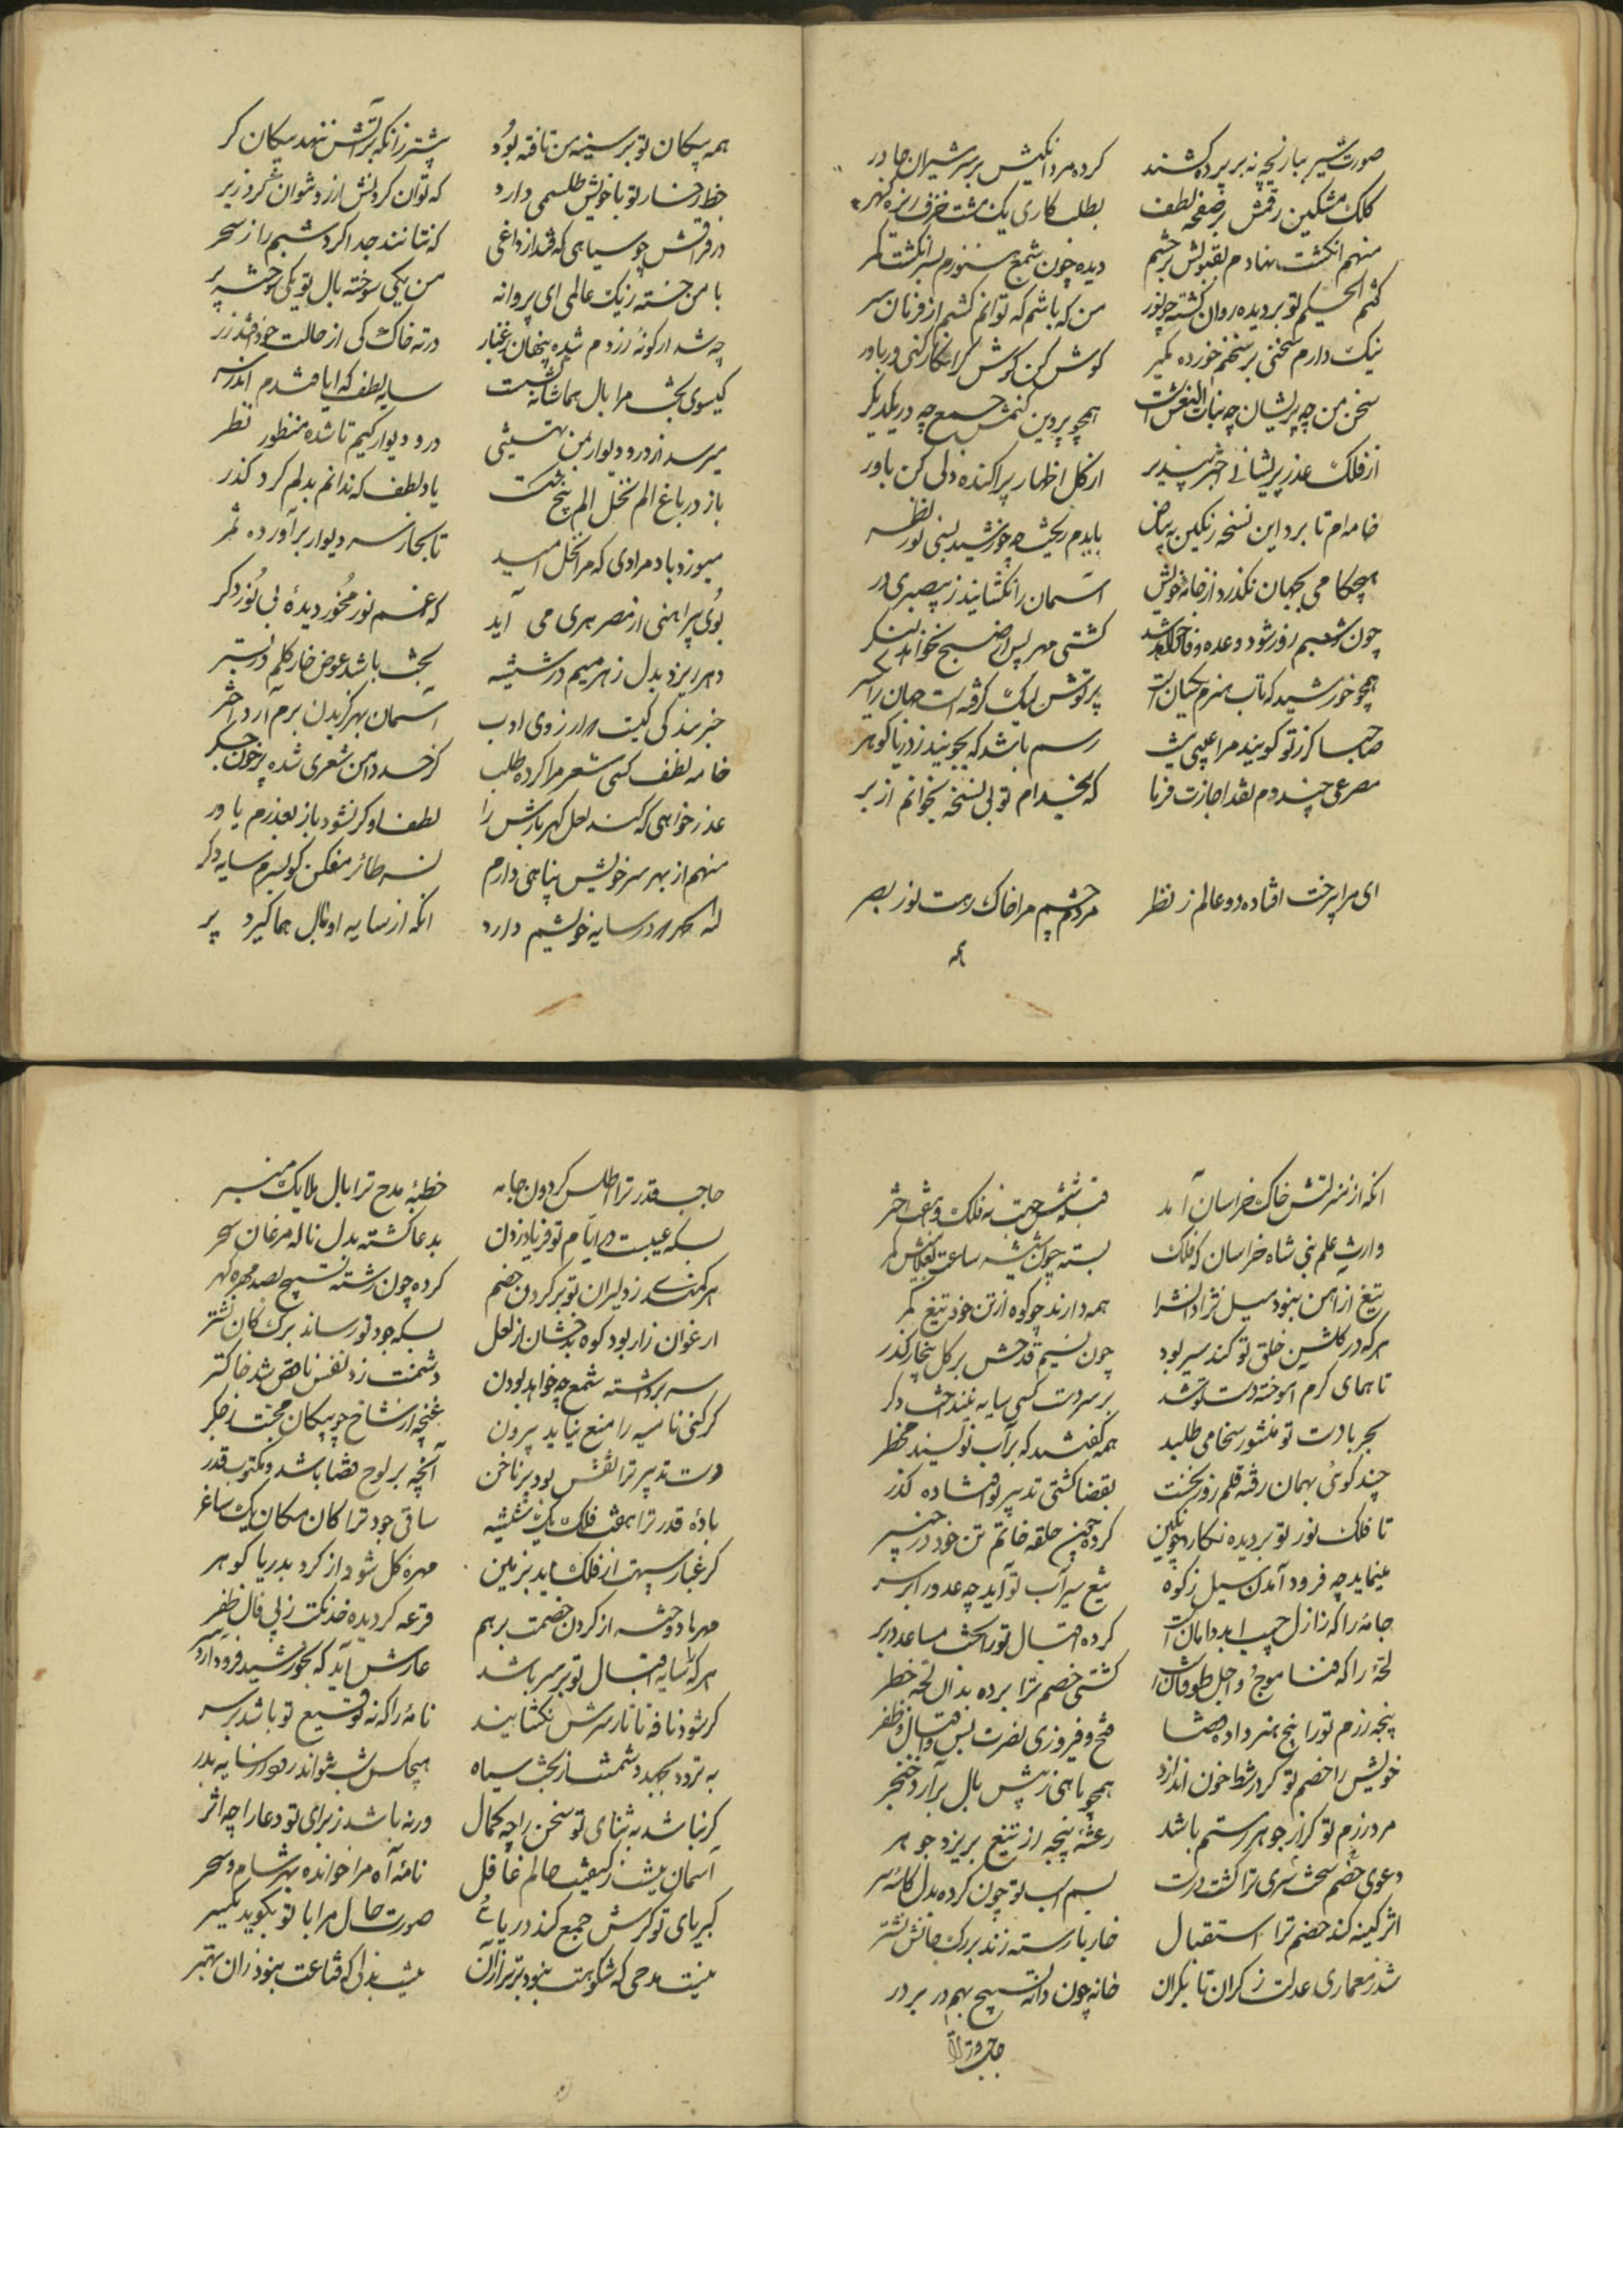 صورت شیر ببازیچه نه بر پرده کشند کرده مردانگیش بر سر شیران چادر
کلک مشکین رقمش بر صفحه لطف بطلب کاری یک مشت خزف ریزه گهر
منهم انگشت نهادم بقبولش بر چشم دیده چون شمع هنوزم بسر انگشت نگر
کشم الحکم تو بر دیده روان گشته چو نور من که باشم که توانم کشم از فرمان سر
نیک دارم سخنی بر سخنم خورده مگیر گوش کن گوش گر انکار کنی ور باور
سخن من چه پریشان چه بنات النعش است همچو پروین کنمش جمع چه در یکدیگر
از فلک عذر پریشانی بپذیر از گل اظهار پراکنده دلی کن باور
خامه ام تا برد این نسخه رنگین به بیاض بایدم چو خورشید نور نظر
هیچ کامی بجهان نگذرد از خانه خویش آسمان را نگشایند ز بیصبری در
چون شعیبم روز شود وعده وفا خواهد شد کشتی مهر پس از صبح نخواهد لنگر
همچو خورشید که تاب هنرم یکسان است پرتوش لیک گرفته است جهان را
صاحبا گر ز تو گویند مرا عیبی نیست رسم باشد که بجویند ز دریا گوهر
مصرعی چند دوم نقد اجازت فرما که بخدام تو بی نسخه بخوانم از بر
ای مرا بر رخت افتاده دو عالم ز نظر مردم چشم مرا خاک رهت نور بصر
همه
همه پیکان تو بر سینه من تافته بود پیشتر زانکه بر آتش ننهد پیکان گر
خط رخسار تو با خویش طلسمی دارد که توان کردنش از رو نتوان کرد ز بر
در فراقش چو سیاهی که فتد از داغی که نتانند جدا کرد شبم را ز سحر
با من خسته ز یک عالمی ای پروانه من یکی سوخته بال تو یکی سوخته پر
چه شد ار گونه زردم شده پنهان ز غبار در ته خاک کی از حالت خود افتد زر
گیسوی بخت مرا بال هما شانه کشست سایه لطف که ایا فتدم اندر سر
میرسد از در و دیوار بمن تهنیتی در و دیوار کیم تا شده منظور نظر
باز در باغ الم نخل الم بیخ یاد لطف که ندانم بدلم کرد گذر
میوزد باد مرادی که مرا نخل امید تا کجا ز سر دیوار بر آورده ثمر
بوی پیراهنی از مصر هری می آید که غم نور مخور دیده بی نور دگر
دهر ریزد بدل زهر میم در شیشه بخت باشد عوض خار گلم در بستر
خبر بندگی کیست مرا از روی ادب آسمان بهر گزیدن برم آرد اختر
خامه لطف کسی شعر مرا کرده طلب کز حسد دامن شعری شده پر خون جگر
عذر خواهی که کند لعل گهر بارش را لطف او گر نشود باز بعذرم یاور
منهم از بهر سر خویش پناهی دارم نسر طائر مفکن گو بسرم سایه دگر
که مرا در سایه خویشم دارد آنکه از سایه او بال هما گیرد پر
آنکه از منزلتش خاک خراسان آمد قبله شش جهت نه فلک و هفت اختر
وارث علم نبی شاه خراسان که فلک بسته چون شیشه ساعت بغلامیش کمر
تیغ از آهن نبود سیل نژاد انش را همه دارند چو کوه از تن خود تیغ کمر
هر که در گلشن خلق تو کند سیر بود چون نسیم قدحش بر گل بیخار گذر
تا همای کرم آموخته دست تو شد بر سر دست کسی سایه نیفند دگر
بحر با دست تو منشور سخا می طلبید همه گفتند که بر آب نویسند محضر
چند گوئی بهمان رفته قلم روز نخست بقضا کشتی تدبیر تو افتاده گذر
تا فلک نور تو بر دیده نگارد چو نگین کرده چون حلقه خاتم تن خود در چنبر
مینماید چه فرود آمدن سیل ز کوه تیغ سیراب تو آید چه عدو را بر سر
جامه را که ز ازل جیب ابد دامان است کرده اقبال تو را بخت مساعد در بر
لجه را که فنا موج و اجل طوفان است کشتی خصم ترا برده بدان لجه خطر
پنجه رزم تو را پنج هنر داده قضا فتح و فیروزی نصرت پس اقبال و ظفر
خویش را خصم تو گر در شط خون اندازد همچو ماهی ز پیش بال بر آرد خنجر
مرد رزم تو گر از جوهر رستم باشد رعشه پنجه از تیغ بریزد جوهر
دعوی خصم ترا گشت درست سم اسب تو چون کرده بدل کاسه سر
اثر کینه کند خصم ترا استقبال خار نارسته زند بر رگ جانش نشتر
شد ز معماری عدلت ز کران تا بکران خانه چون دانه تسبیح بهم در بر در
حاجب قدر ترا
حاجب قدر ترا اطلس گردون جامه خطبه مدح ترا بال ملایک منبر
بسکه عیبست در ایام تو فریاد زدن بدعا گشته بدل ناله مرغان سحر
هر کمندی ز دلیران تو بر گردن خصم کرده چون رشته تسبیح بصد مهره گهر
ارغوان زار بود کوه بدخشان از لعل بسکه جود تو رساند برگ کان نشتر
سر برداشته شمع چه خواهد بودن دشمنت زد نفس ناقص شد خاکستر
گر کنی نامیه را منع نیاید بیرون غنچه از شاخ چو پیکان محبت ز جگر
دست تدبیر ترا نقش بود بر ناخن آنچه بر لوح قضا باشد و مکتوب قدر
باده قدر ترا هفت فلک یک شیشه ساقی جود ترا کان مکان یک ساغر
گر غبار سپهت از فلک آید بزمین مهره گل شود از گرد بدریا گوهر
مهر باد از گردن خصمت بر هم قرعه گردیده خدنگت ز پی فال ظفر
هر که را سایه اقبال تو بر سر باشد عارش آید که بخورشید فرود آرد سر
گر شود نافه تاتار سرش نگشایند نامه را که نه توقیع تو باشد بر سر
به تردد نجهد دشمنت از بخت سیاه هیچکس شب نتواند رود از سایه بدر
گر نباشد به ثنای تو سخن را چه کمال ور نباشد ز برای تو دعا را چه اثر
آسمان نیست ز کیفیت حالم غافل نامه آه مرا خوانده بهر شام و سحر
کبریای تو گرش جمع کند در یاء صورت حال مرا با تو بگوید یکسر
نیست مدحی که شکوهت نبود برتر از آن نیست بذلی که قناعت نبود زان بهتر